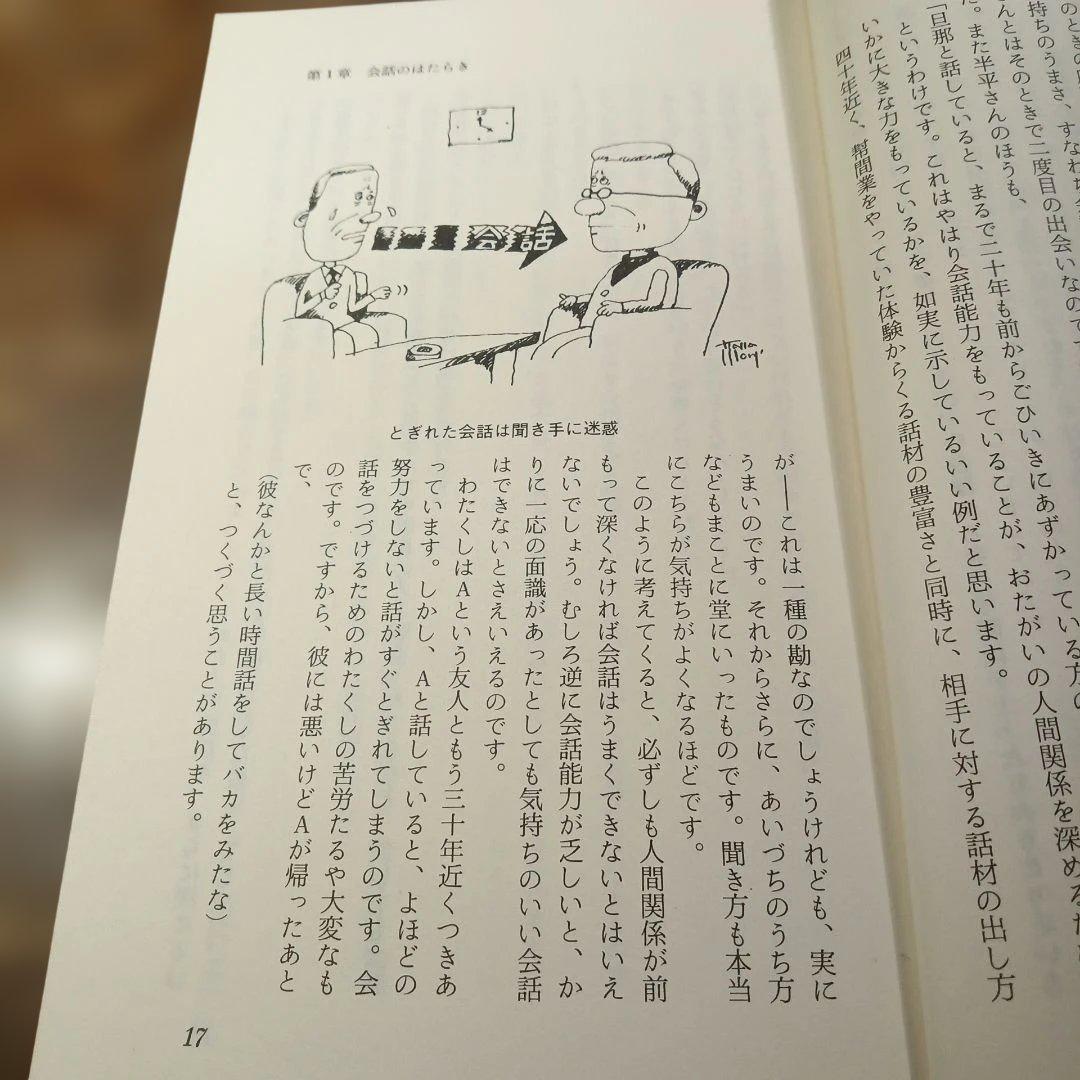 持ちのうまさ、すなわち
んとはそのときで二度目の出会いなので
た。また半平さんのほうも、
「旦那と話していると、まるで二十年も前からごひいきにあずかっている方の
というわけです。これはやはり会話能力をもっていることが、おたがいの人間関係を深める
いかに大きな力をもっているかを、如実に示しているいい例だと思います。
四十年近く、幇間業をやっていた体験からくる話材の豊富さと同時に、相手に対する話材の出し方
第1章 会話のはたらき
12
会話
とぎれた会話は聞き手に迷惑
が――これは一種の勘なのでしょうけれども、実に
うまいのです。それからさらに、あいづちのうち方
などもまことに堂にいったものです。聞き方も本当
にこちらが気持ちがよくなるほどです。
このように考えてくると、必ずしも人間関係が前
もって深くなければ会話はうまくできないとはいえ
ないでしょう。むしろ逆に会話能力が乏しいと、か
りに一応の面識があったとしても気持ちのいい会話
はできないとさえいえるのです。
わたくしはAという友人ともう三十年近くつきあ
っています。しかし、Aと話していると、よほどの
努力をしないと話がすぐとぎれてしまうのです。会
話をつづけるためのわたくしの苦労たるや大変なも
のです。ですから、彼には悪いけどAが帰ったあと
で、
（彼なんかと長い時間話をしてバカをみたな）
と、つくづく思うことがあります。
17